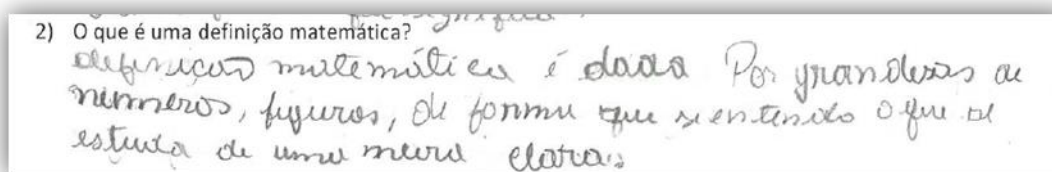 2) O que é uma definição matemática?
definição matemática é dada Por grandesas de
numeros, figuras, de forma que se entenda o que se
estuda de uma meira clara.